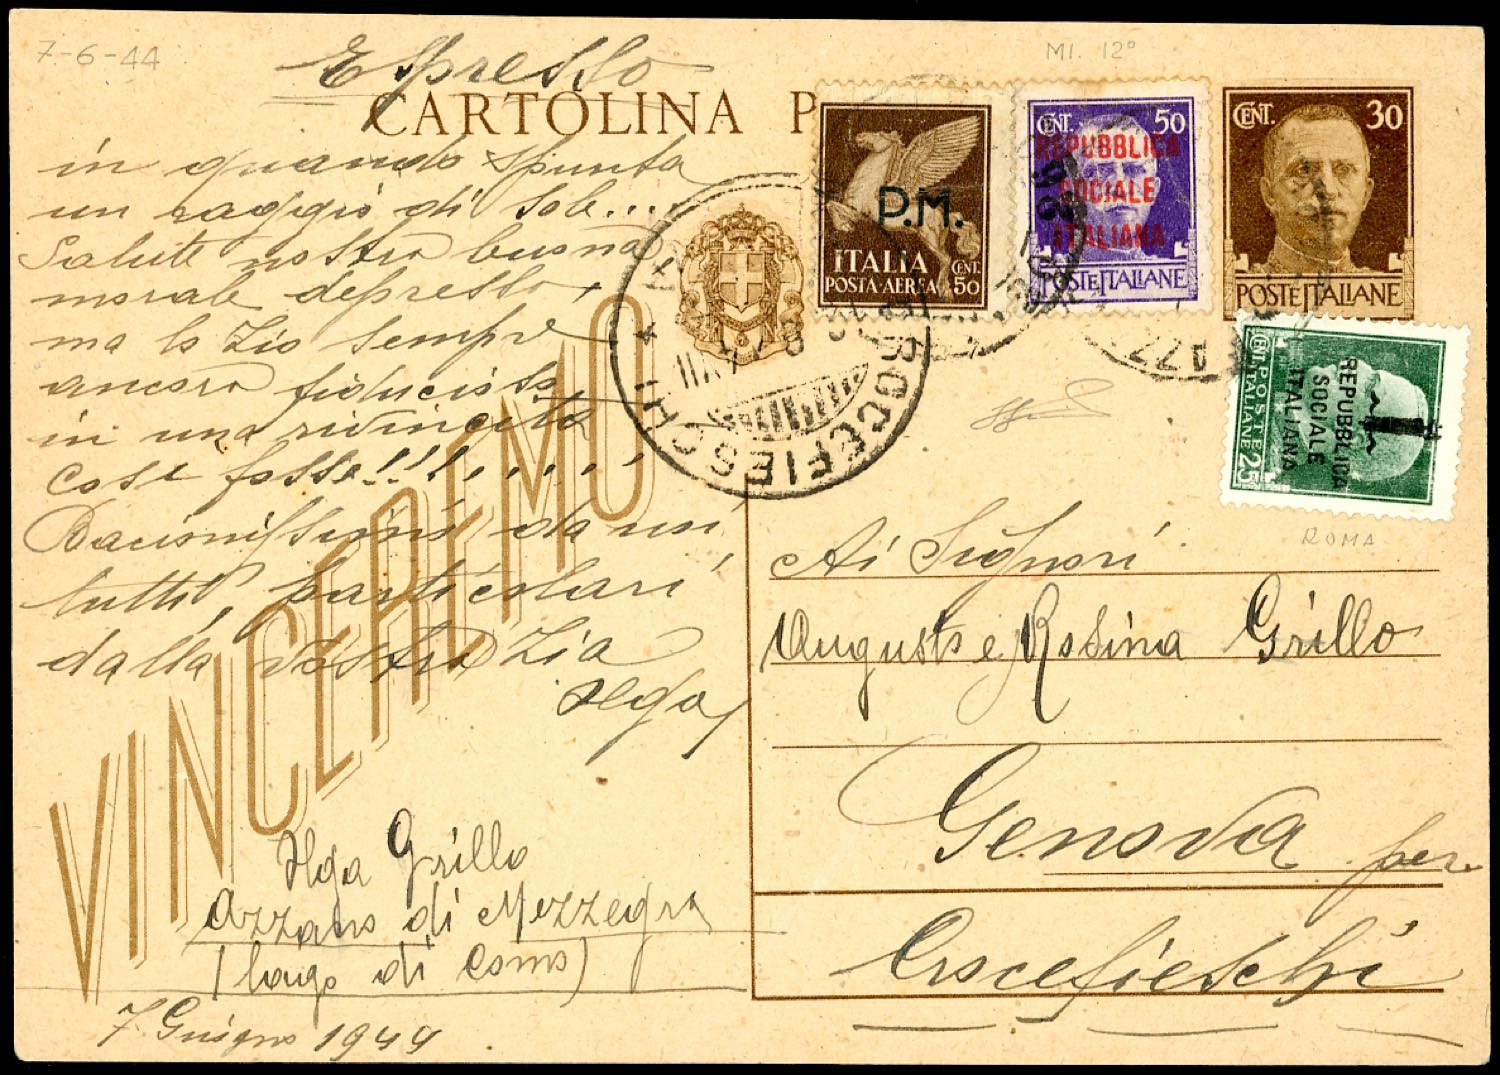 7-6-44
Espresso
MI. 12°
CARTOLINA P
in quando spunta
un raggio di sole...
Salute nostra buona
morale depresso,
ma lo Zio sempre
ancora fiducioso
in una rivincita
Così fosse!!!.....
Bacionissimi da noi
tutti, particolari
dalla vostra Zia
Ilga
VINCEREMO
Ilga Grillo
Azzano di Mezzegra
(lago di Como)
7 Giugno 1944
P.M.
ITALIA CENT. 50
POSTA AEREA
CENT. 50
REPUBBLICA
SOCIALE
ITALIANA
POSTE ITALIANE
CENT. 30
POSTE ITALIANE
CENT. 25
POSTE ITALIANE
REPUBBLICA
SOCIALE
ITALIANA
ROMA
CROCEFIESCHI
Ai Signori
Augusto e Rosina Grillo
Genova per
Crocefieschi